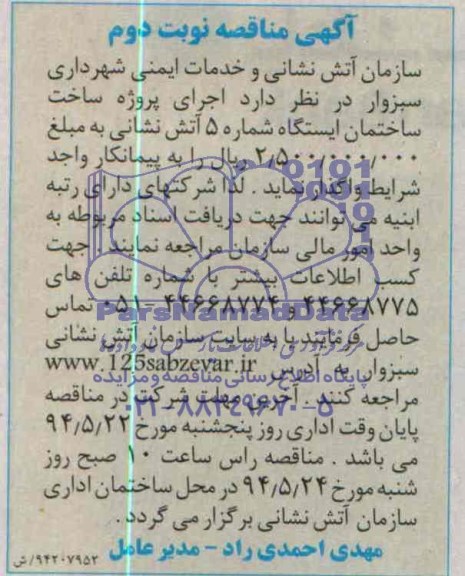 آگهی مناقصه نوبت دوم
سازمان آتش نشانی و خدمات ایمنی شهرداری
سبزوار در نظر دارد اجرای پروژه ساخت
ساختمان ایستگاه شماره ۵ آتش نشانی به مبلغ
۲/۵۰۰/۰۰۰/۰۰۰ ریال را به پیمانکار واجد
شرایط واگذار نماید . لذا شرکتهای دارای رتبه
ابنیه می توانند جهت دریافت اسناد مربوطه به
واحد امور مالی سازمان مراجعه نمایند . جهت
کسب اطلاعات بیشتر با شماره تلفن های
۴۴۶۶۸۷۷۵ و ۴۴۶۶۸۷۷۴ - ۰۵۱ تماس
ParsNamadData
حاصل فرمائید یا به سایت سازمان آتش نشانی
سبزوار به آدرس www.125sabzevar.ir
پایگاه اطلاع رسانی مناقصه و مزایده
مراجعه کنند . آخرین مهلت شرکت در مناقصه
۰۲۱-۸۸۳۴۹۶۷۰-۵
پایان وقت اداری روز پنجشنبه مورخ ۹۴/۵/۲۲
می باشد . مناقصه راس ساعت ۱۰ صبح روز
شنبه مورخ ۹۴/۵/۲۴ در محل ساختمان اداری
سازمان آتش نشانی برگزار می گردد .
مهدی احمدی راد - مدیر عامل
۹۴۲۰۷۹۵۲/ش